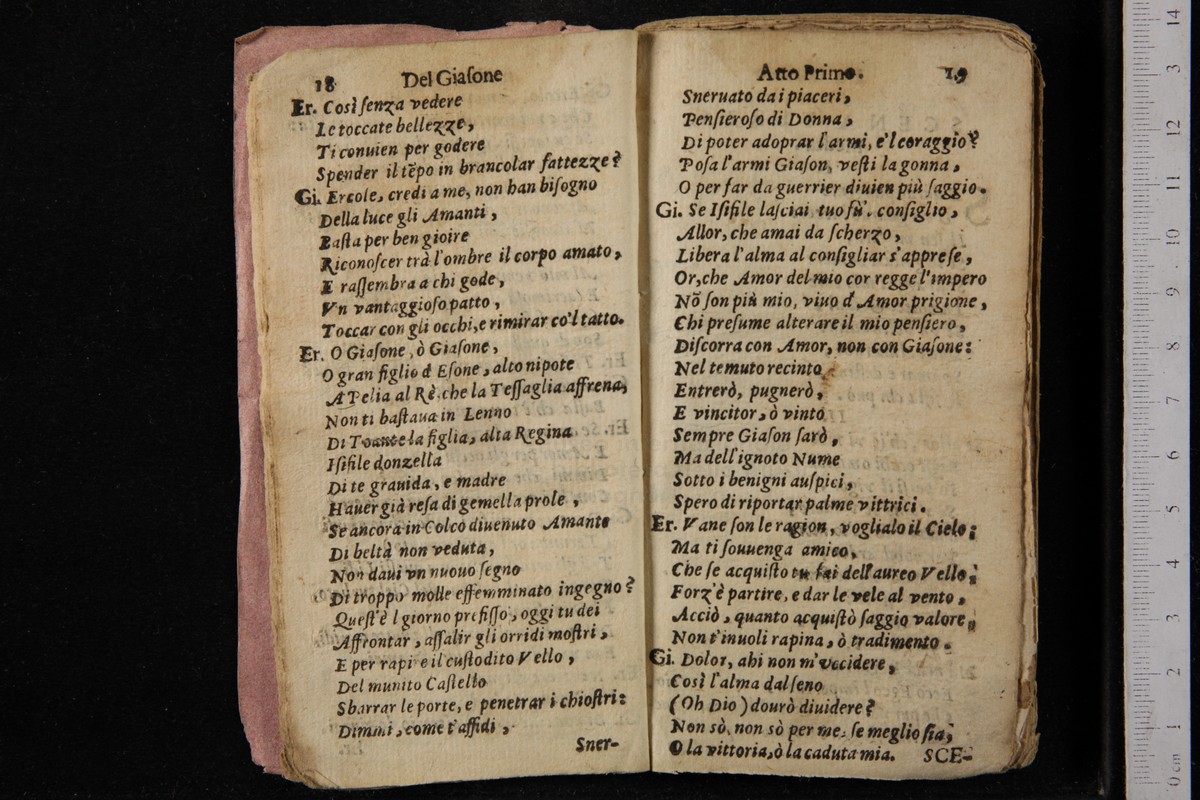 18 Del Giaſone
Er. Così ſenza vedere
Le toccate bellezze,
Ti conuien per godere
Spender il tẽpo in brancolar fattezze?
Gi. Ercole, credi a me, non han biſogno
Della luce gli Amanti,
Baſta per ben gioire
Riconoſcer trà l'ombre il corpo amato,
E raſſembra a chi gode,
Vn vantaggioſo patto,
Toccar con gli occhi, e rimirar co'l tatto.
Er. O Giaſone, ò Giaſone,
O gran figlio d Eſone, alto nipote
A Pelia al Rè, che la Teſſaglia affrena,
Non ti baſtaua in Lenno
Di Toante la figlia, alta Regina
Iſifile donzella
Di te grauida, e madre
Hauer già reſa di gemella prole,
Se ancora in Colco diuenuto Amante
Di beltà non veduta,
Non daui vn nuouo ſegno
Di troppo molle effemminato ingegno?
Queſt'è l giorno prefiſſo, oggi tu dei
Affrontar, aſſalir gli orridi moſtri,
E per rapire il cuſtodito Vello,
Del munito Caſtello
Sbarrar le porte, e penetrar i chioſtri:
Dimmi, come t'affidi,
Sner-
Atto Primo. 19
Sneruato da i piaceri,
Penſieroſo di Donna,
Di poter adoprar l'armi, e'l coraggio?
Poſa l'armi Giaſon, veſti la gonna,
O per far da guerrier diuien più ſaggio.
Gi. Se Iſifile laſciai tuo fù. conſiglio,
Allor, che amai da ſcherzo,
Libera l'alma al conſigliar s'appreſe,
Or, che Amor del mio cor regge l'impero
Nõ ſon più mio, viuo d'Amor prigione,
Chi preſume alterare il mio penſiero,
Diſcorra con Amor, non con Giaſone:
Nel temuto recinto
Entrerò, pugnerò,
E vincitor, ò vinto
Sempre Giaſon ſarò,
Ma dell'ignoto Nume
Sotto i benigni auſpici,
Spero di riportar palme vittrici.
Er. Vane ſon le ragion, voglialo il Cielo;
Ma ti ſouuenga amico,
Che ſe acquiſto tu fai dell'aureo Vello,
Forz'è partire, e dar le vele al vento,
Acciò, quanto acquiſtò ſaggio valore,
Non t'inuoli rapina, ò tradimento.
Gi. Dolor, ahi non m'vccidere,
Così l'alma dal ſeno
(Oh Dio) dourò diuidere?
Non sò, non sò per me, ſe meglio ſia,
O la vittoria, ò la caduta mia. SCE-